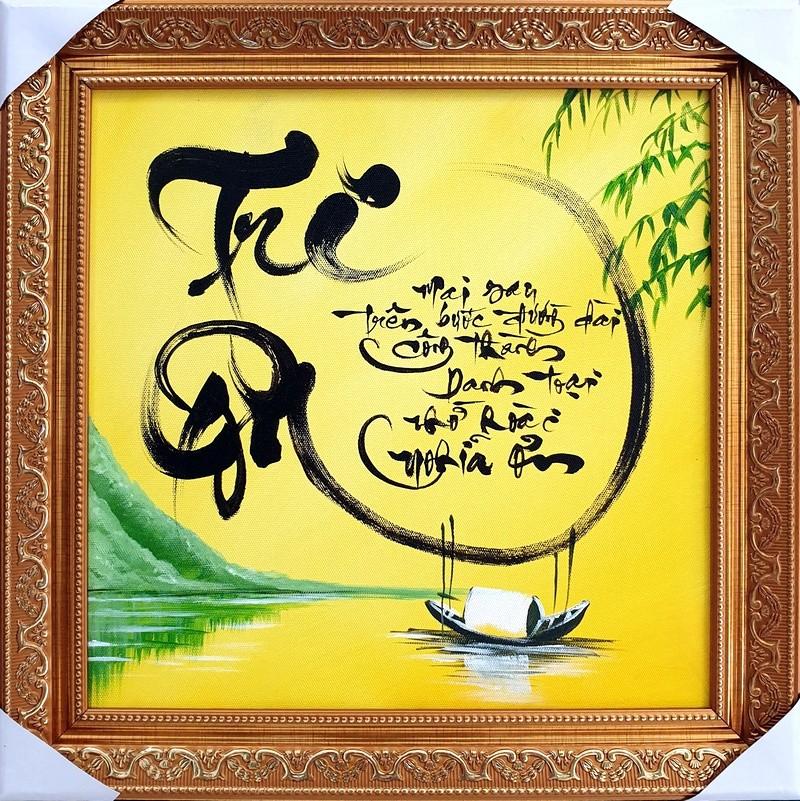 Tri
Ân
Mai sau
Trên bước đường dài
Công thành
Danh toại
nhớ hoài
nghĩa Ơn